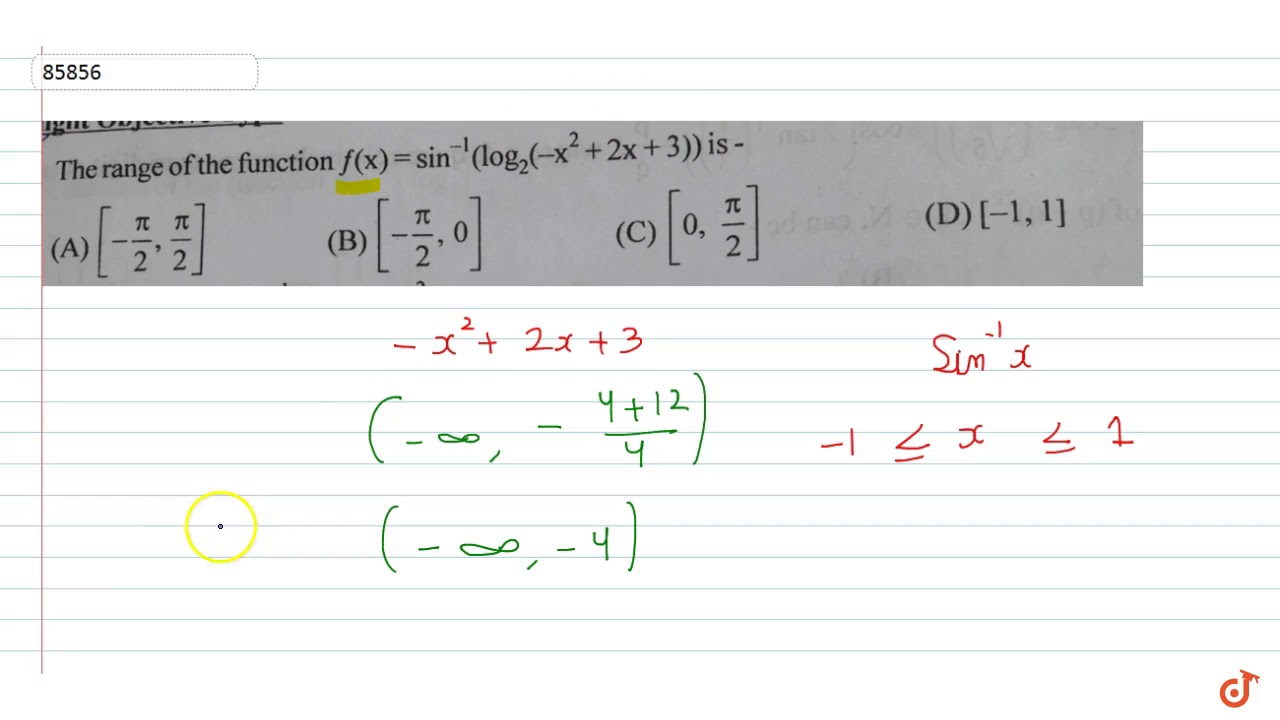 85856
The range of the function f(x) = sin⁻¹(log₂(–x² + 2x + 3)) is -
(A) [–π/2, π/2] (B) [–π/2, 0] (C) [0, π/2] (D) [–1, 1]
- x² + 2x + 3
Sin⁻¹ x
(- ∞, - (4 + 12)/4)
-1 ≤ x ≤ 1
(- ∞, - 4)